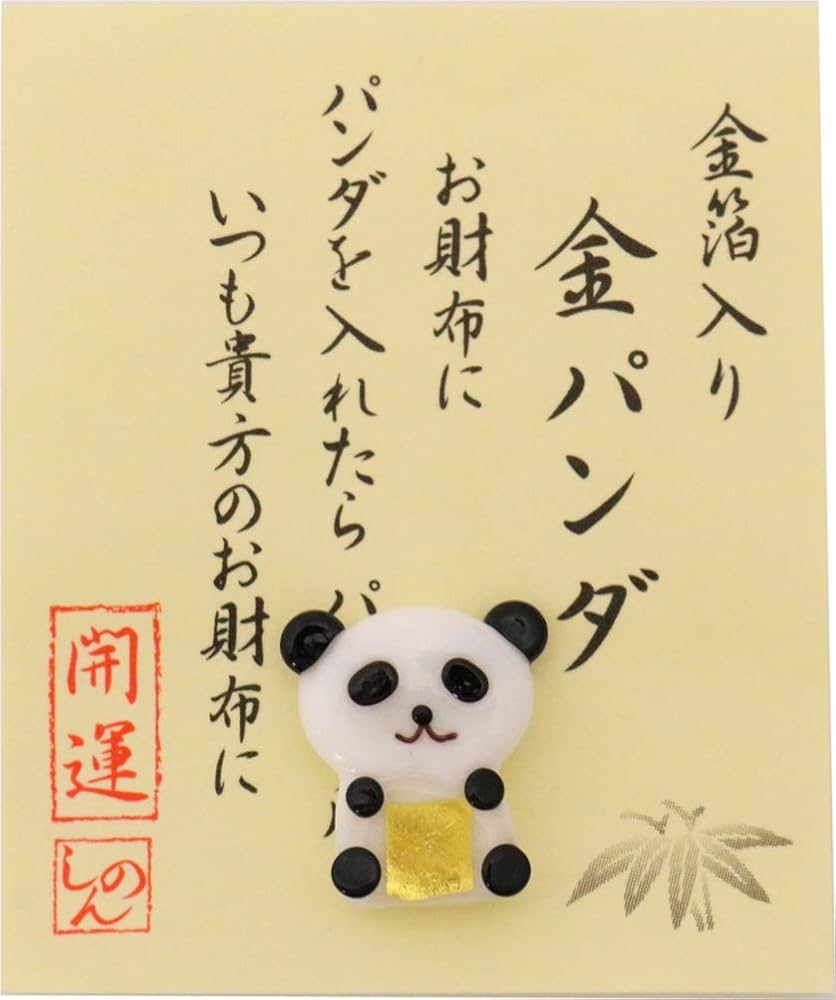 金箔入り
金パンダ
お財布に
パンダを入れたら パ
いつも貴方のお財布に
開運
のしん